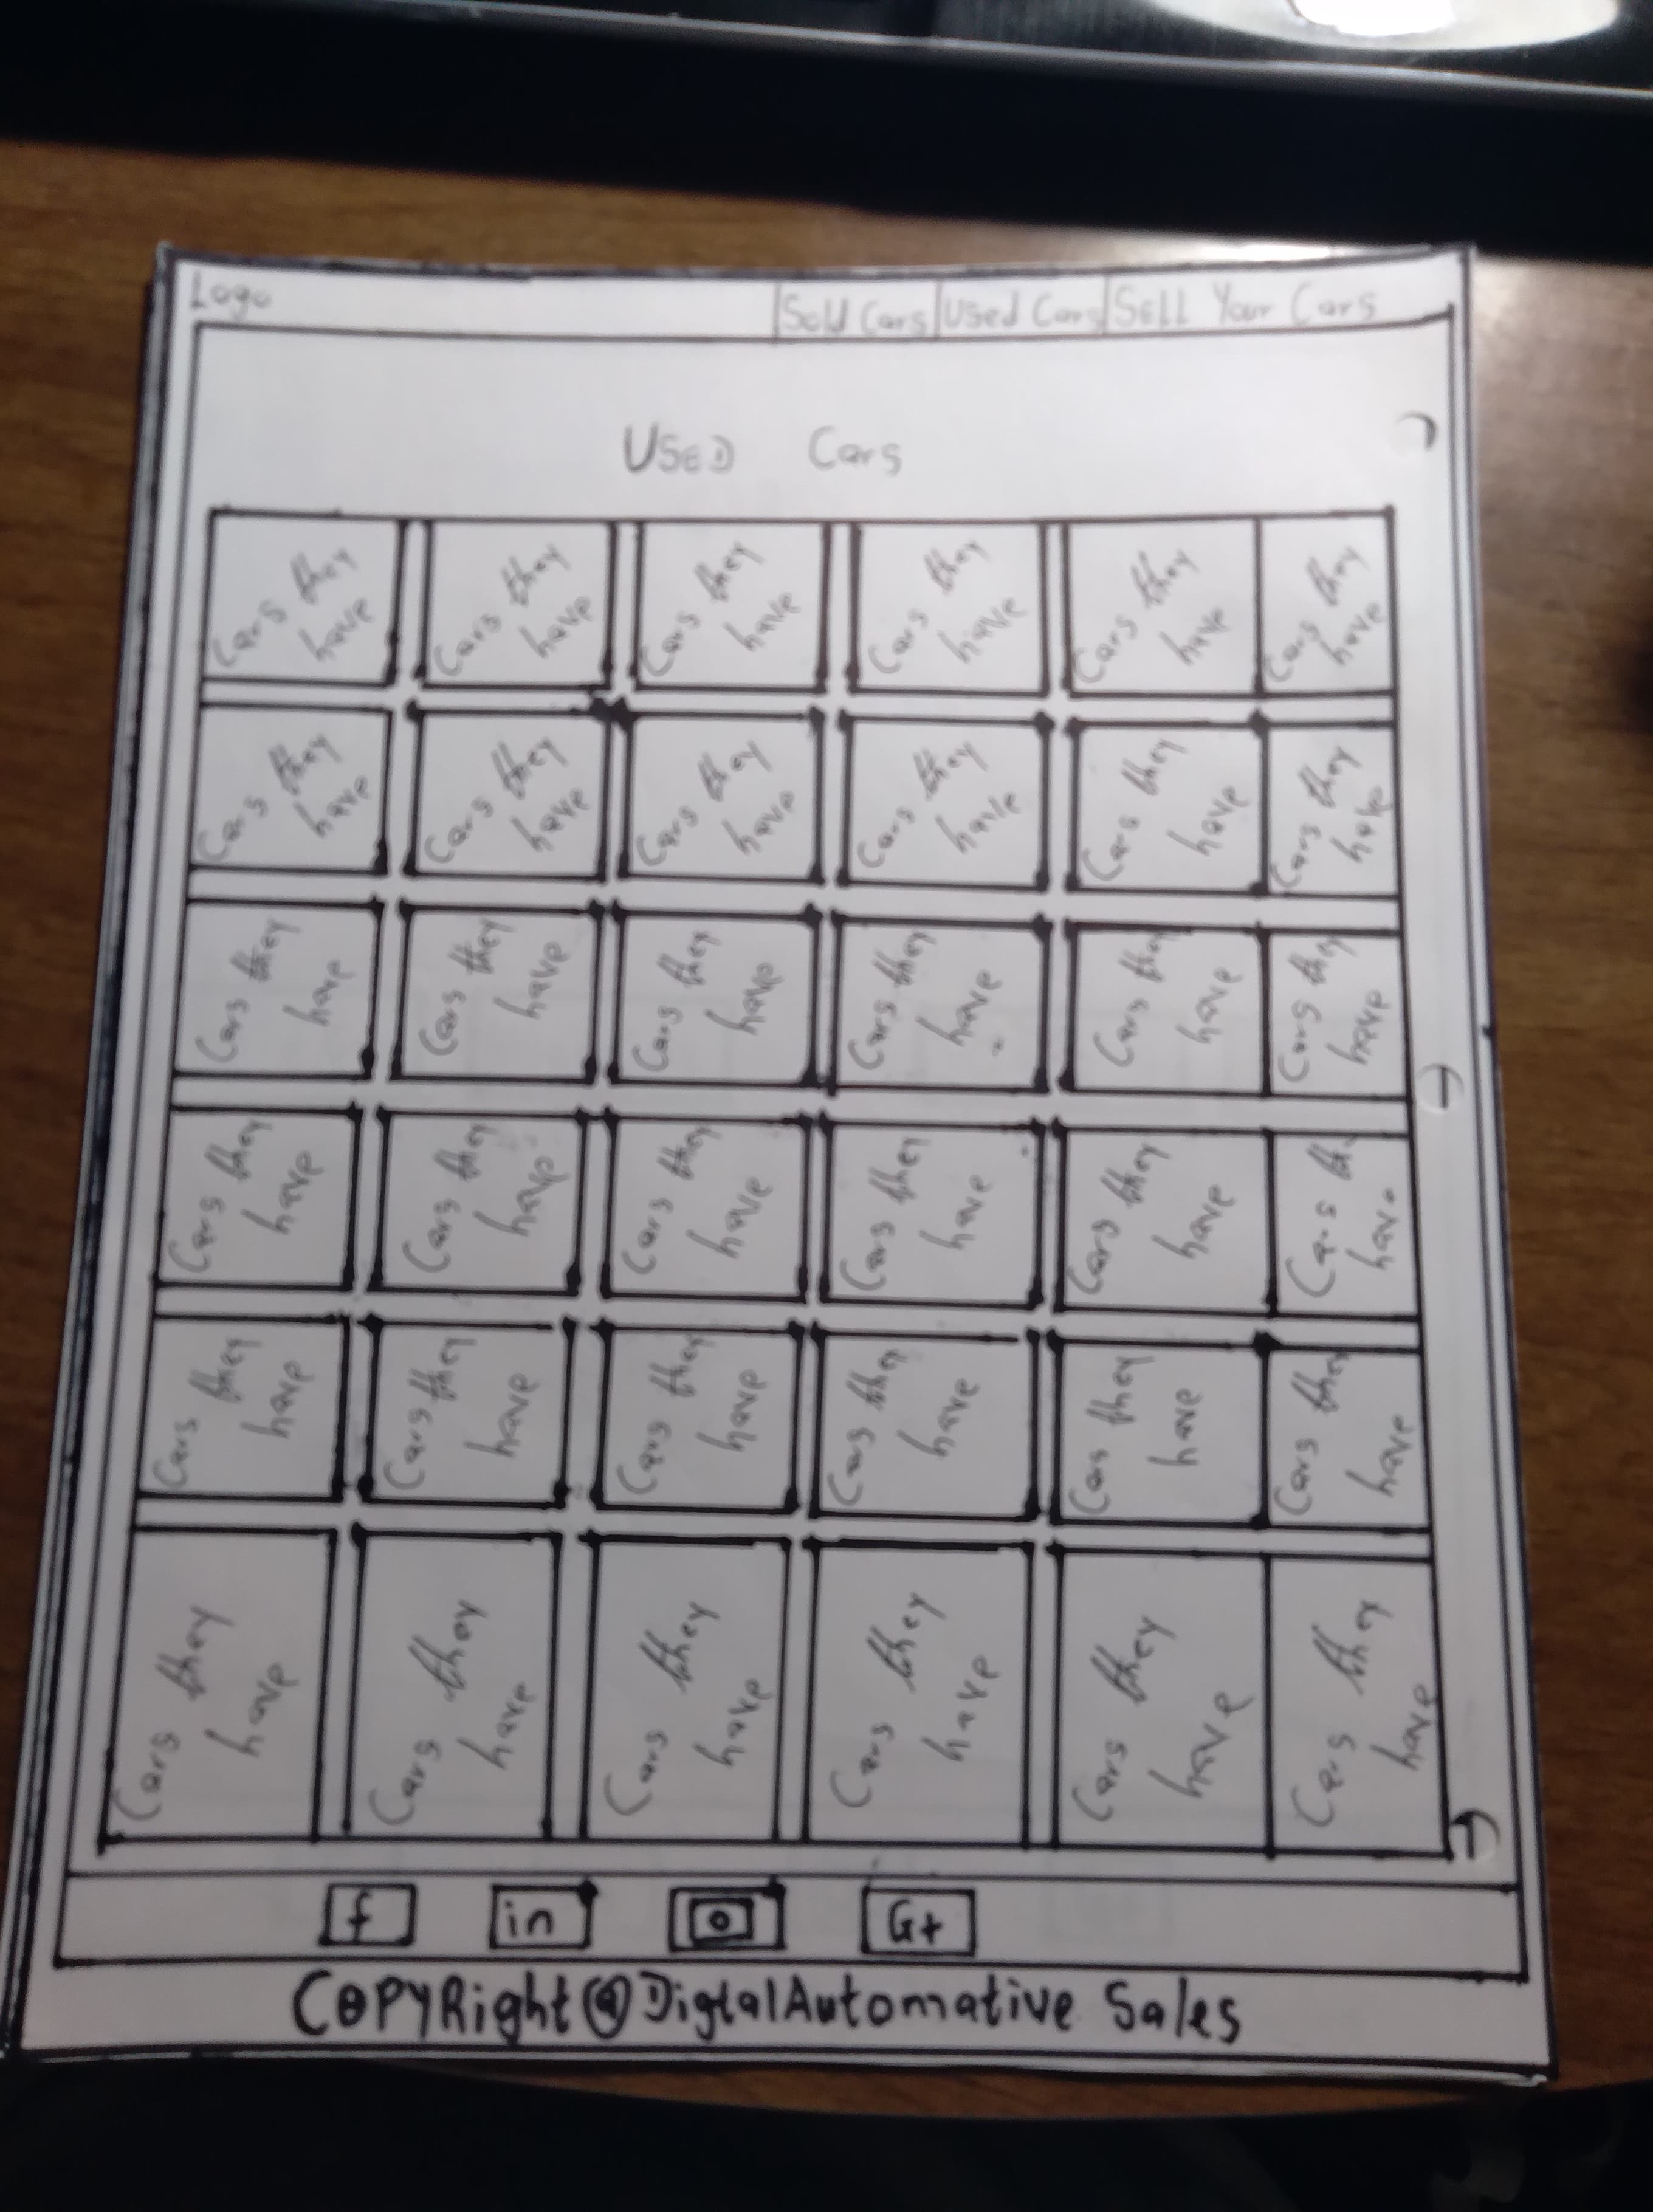 Logo
Sold Cars
Used Cars
Sell Your Cars
USED Cars
Cars they
have
Cars they
have
Cars they
have
Cars they
have
Cars they
have
Cars they
have
Cars they
have
Cars they
have
Cars they
have
Cars they
have
Cars they
have
Cars they
have
Cars they
have
Cars they
have
Cars they
have
Cars they
have
Cars they
have
Cars they
have
Cars they
have
Cars they
have
Cars they
have
Cars they
have
Cars they
have
Cars
have
Cars they
have
Cars they
have
Cars they
have
Cars they
have
Cars they
have
Cars they
have
Cars they
have
Cars they
have
Cars they
have
Cars they
have
Cars they
have
Cars they
have
f
in
G+
COPYRight@DigtalAutomative Sales